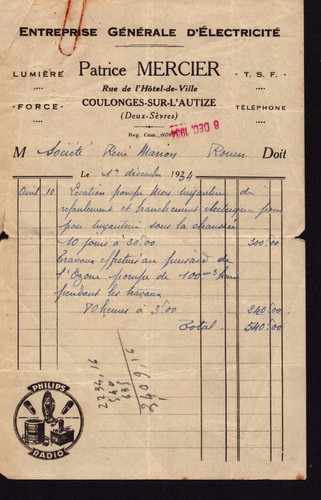 ENTREPRISE GÉNÉRALE D'ÉLECTRICITÉ
LUMIÈRE
Patrice MERCIER
T. S. F.
Rue de l'Hôtel-de-Ville
FORCE
COULONGES-SUR-L'AUTIZE
TÉLÉPHONE
(Deux-Sèvres)
Reg. Com.
8 DEC. 1934
M Société René Marion Rouen Doit
Le 1er décembre 1934
Avril 10 Location pompe
refoulement et branchement électrique pour
pose sous la chaussée
10 jours à 30.00 300.00
Travaux effectués au
l'Ozone pompe de 100 m3
pendant les travaux
80 heures à 3.00 240.00
Total 540.00
2234,16
540
635
3409,16
PHILIPS
RADIO